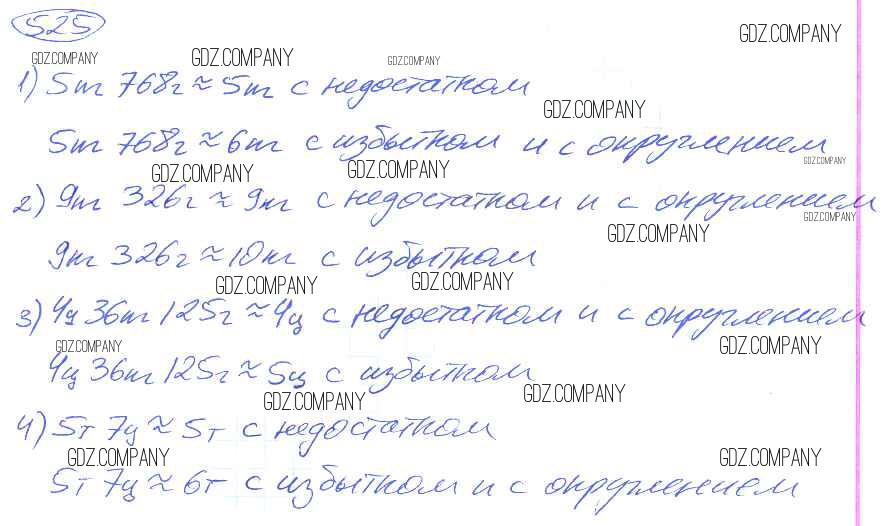 525
GDZ.COMPANY
GDZ.COMPANY GDZ.COMPANY GDZ.COMPANY
1) 5кг 768г ≈ 5кг с недостатком
GDZ.COMPANY
5кг 768г ≈ 6кг с избытком и с округлением
GDZ.COMPANY GDZ.COMPANY GDZ.COMPANY
2) 9кг 326г ≈ 9кг с недостатком и с округлением
GDZ.COMPANY
GDZ.COMPANY
9кг 326г ≈ 10кг с избытком
GDZ.COMPANY GDZ.COMPANY
3) 4ц 36кг 125г ≈ 4ц с недостатком и с округлением
GDZ.COMPANY GDZ.COMPANY
4ц 36кг 125г ≈ 5ц с избытком
GDZ.COMPANY GDZ.COMPANY
4) 5т 7ц ≈ 5т с недостатком
GDZ.COMPANY GDZ.COMPANY
5т 7ц ≈ 6т с избытком и с округлением